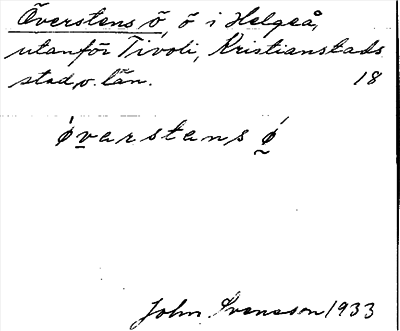 Överstens ö, ö i Helgeå,
utanför Tivoli, Kristianstads
stad o. län. 18
ǿvarstens ǿ
John Svensson 1933